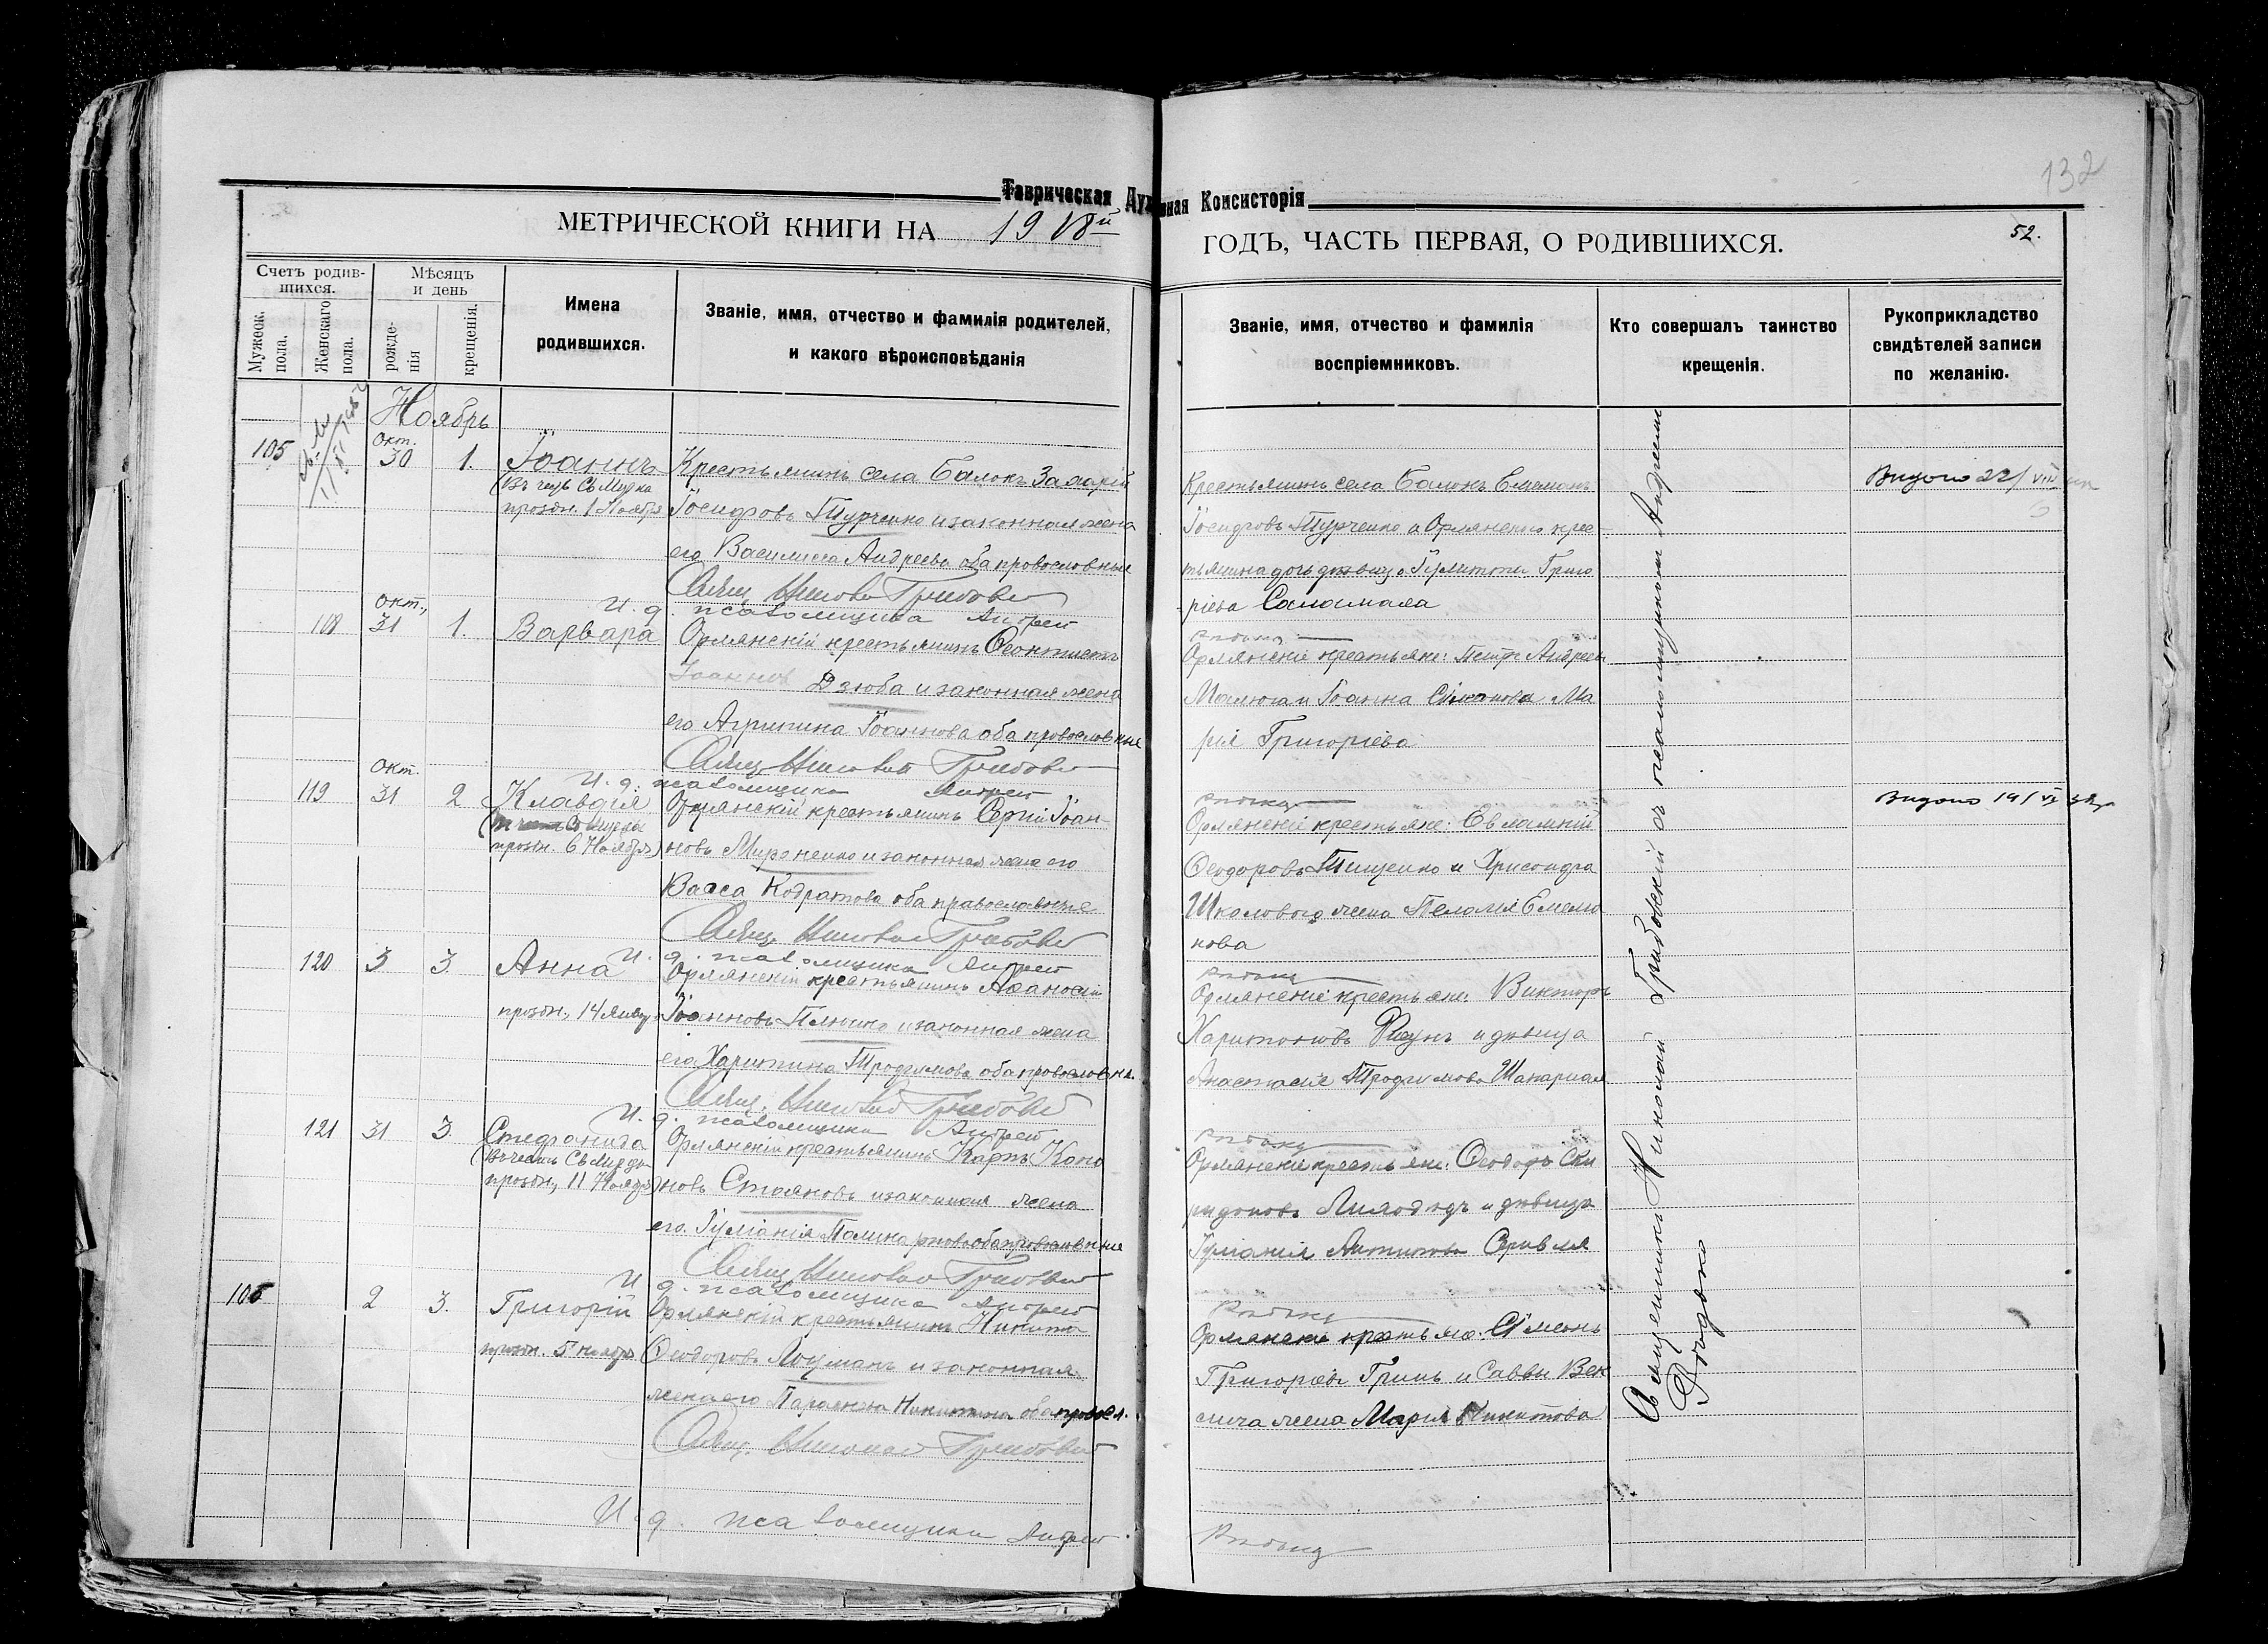 132
Таврическая Духовная Консисторія
МЕТРИЧЕСКОЙ КНИГИ НА 1918й ГОДЪ, ЧАСТЬ ПЕРВАЯ, О РОДИВШИХСЯ.
52.
Счетъ родив-
шихся.
Мужеск.
пола.
Женскаго
пола.
Мѣсяцъ
и день
рожде-
нія
крещенія.
Имена
родившихся.
Званіе, имя, отчество и фамилія родителей,
и какого вѣроисповѣданія
Званіе, имя, отчество и фамилія
воспріемниковъ.
Кто совершалъ таинство
крещенія.
Рукоприкладство
свидѣтелей записи
по желанію.
Ноябрь
105
Окт.
30
1.
Іоаннъ
(Въ честь Св
праздн. 1 Ноября
Крестьянинъ села Балокъ Захарій
Іосифовъ Турченко и законная жена
его Василиса Андреева оба православные
Свящ. Николай Грибовск
И. д. псаломщика Андрей
Крестьянинъ села Балокъ Емеліанъ
Іосифовъ Турченко и Орлянскаго крес-
тьянина дочь дѣвица Гулитта Григо
-ріева Саламаха
Видано 22/VIII
108
Окт.,
31
1.
Варвара
Орлянскій крестьянинъ Ѳеоктистъ
Іоанновъ Дзюба и законная жена
его Агрипина Іоаннова оба православные
Свящ. Николай Грибовск
И. д. псаломщика Андрей
Орлянскіе крестьяне: Петръ Андреевъ
Малюга и Іоанна Симонова Ма
рія Григоріева
119
Окт.
31
2
Клавдія
праздн. 6 Ноября)
Орлянскій крестьянинъ Сергій Іоан-
новъ Мироненко и законная жена его
Васса Кодратова оба православные
Свящ. Николай Грибовск
И. д. псаломщика Андрей
Орлянскіе крестьяне: Евлампій
Ѳеодоровъ Тищенко и Хрисанфа
Школового жена Пелагія Емелиа
нова
Видано 19/VI
120
3
3.
Анна
праздн., 14 Январ
Орлянскій крестьянинъ Аѳанасій
Іоанновъ Плюшко и законная жена
его Харитина Трофимова оба православн.
Свящ. Николай Грибовск
И. д. псаломщика Андрей
Орлянскіе крестьяне: Викторъ
Харитоновъ и дѣвица
Анастасія Трофимова
121
31
3.
Стефанида
(Въ честь Св
праздн., 11 Ноября)
Орлянскій крестьянинъ Карпъ Коно
новъ Стояновъ и законная жена
его Гуліанія Поликарпова оба православные
Свящ. Николай Грибовск
И. д. псаломщика Андрей
Орлянскіе крестьяне: Ѳеодоръ Спи
ридоновъ и дѣвица
Гуліанія Антипова
106
2
3.
Григорій
праздн. 5 ноябр
Орлянскій крестьянинъ Никита
Ѳеодоровъ Лоцманъ и законная
жена его Параскева Никитина оба правосл.
Свящ. Николай Грибовск
И. д. псаломщика Андрей
Орлянскіе крестьяне. Сімеонъ
Григоріевъ Гринь и Саввы Век
лича жена Марія Никитова
Священникъ Николай Грибовскій съ псаломщикомъ Андреемъ